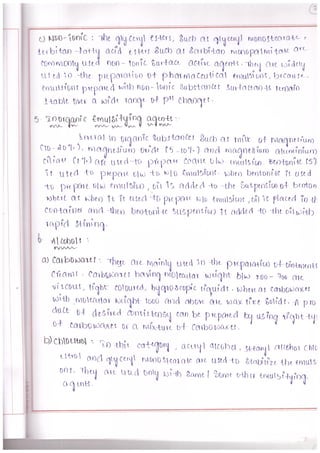 c) Non-Ionic : The glyceryl esters, such as glyceryl monostearate,
sorbitan fatty acid esters such as sorbitan monopalmitate are
commonly used non-ionic surface active agents. They are widely
used in the preparation of pharmaceutical emulsions, because
emulsions prepared with non-ionic substances surfactants remain
stable over a wide range of pH changes.
5 Inorganic Emulsifying agents:-
Several in organic substances such as milk of magnesium
(10-20%), magnesium oxide (5-10%) and magnesium aluminium
silicate (1%) are used to prepare coarse o/w emulsion. Bentonite (5)
is used to prepare o/w to w/o emulsions. when bentonite is used
to prepare o/w emulsion, oil is added to the suspension of benton
where at when it is used to prepare w/o emulsion, oil is placed in th
container and then bentonite suspension is added to the oil with
rapid stirring.
6 Alcohols :
a) Carbowaxes : These are mainly used in the preparation of ointments
creams. Carbowaxes having molecular weight b/w 200-700 are
viscous, light coloured, hygroscopic liquids. Where as carbowaxes
with molecular weight 1000 and above are wax like solids. A pro
duct of desired consistency can be prepared by using right ty
of carbowaxes or a mixture of carbowaxes.
b) Cholesterol : In this category, cetyl alcohol, stearyl alcohol cho
sterol and glyceryl monostearate are used to stabilize the emuls
ons. They are used only with same/ some other emulsifying
agents.